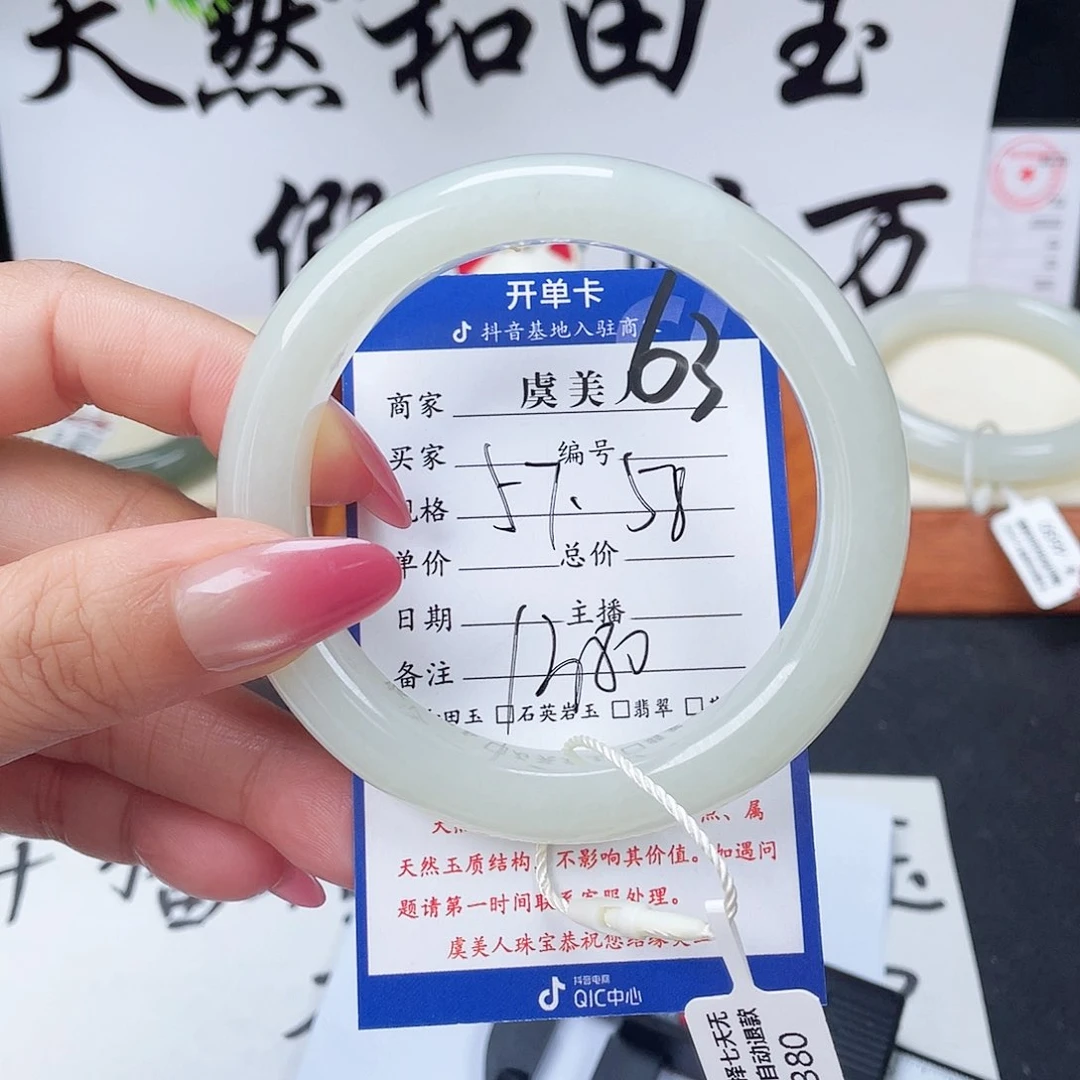 天然和田玉
假 万
开单卡
抖音基地入驻商
63
商家 虞美
买家 编号
规格 57、58
单价 总价
日期 主播
备注 1380
田玉 □石英岩玉 □翡翠 □
天然 点、属
天然玉质结构 不影响其价值。如遇问
题请第一时间联系客服处理。
虞美人珠宝恭祝您结缘美玉
抖音电商
QIC中心
择七天无
自动退款
380
播
玉